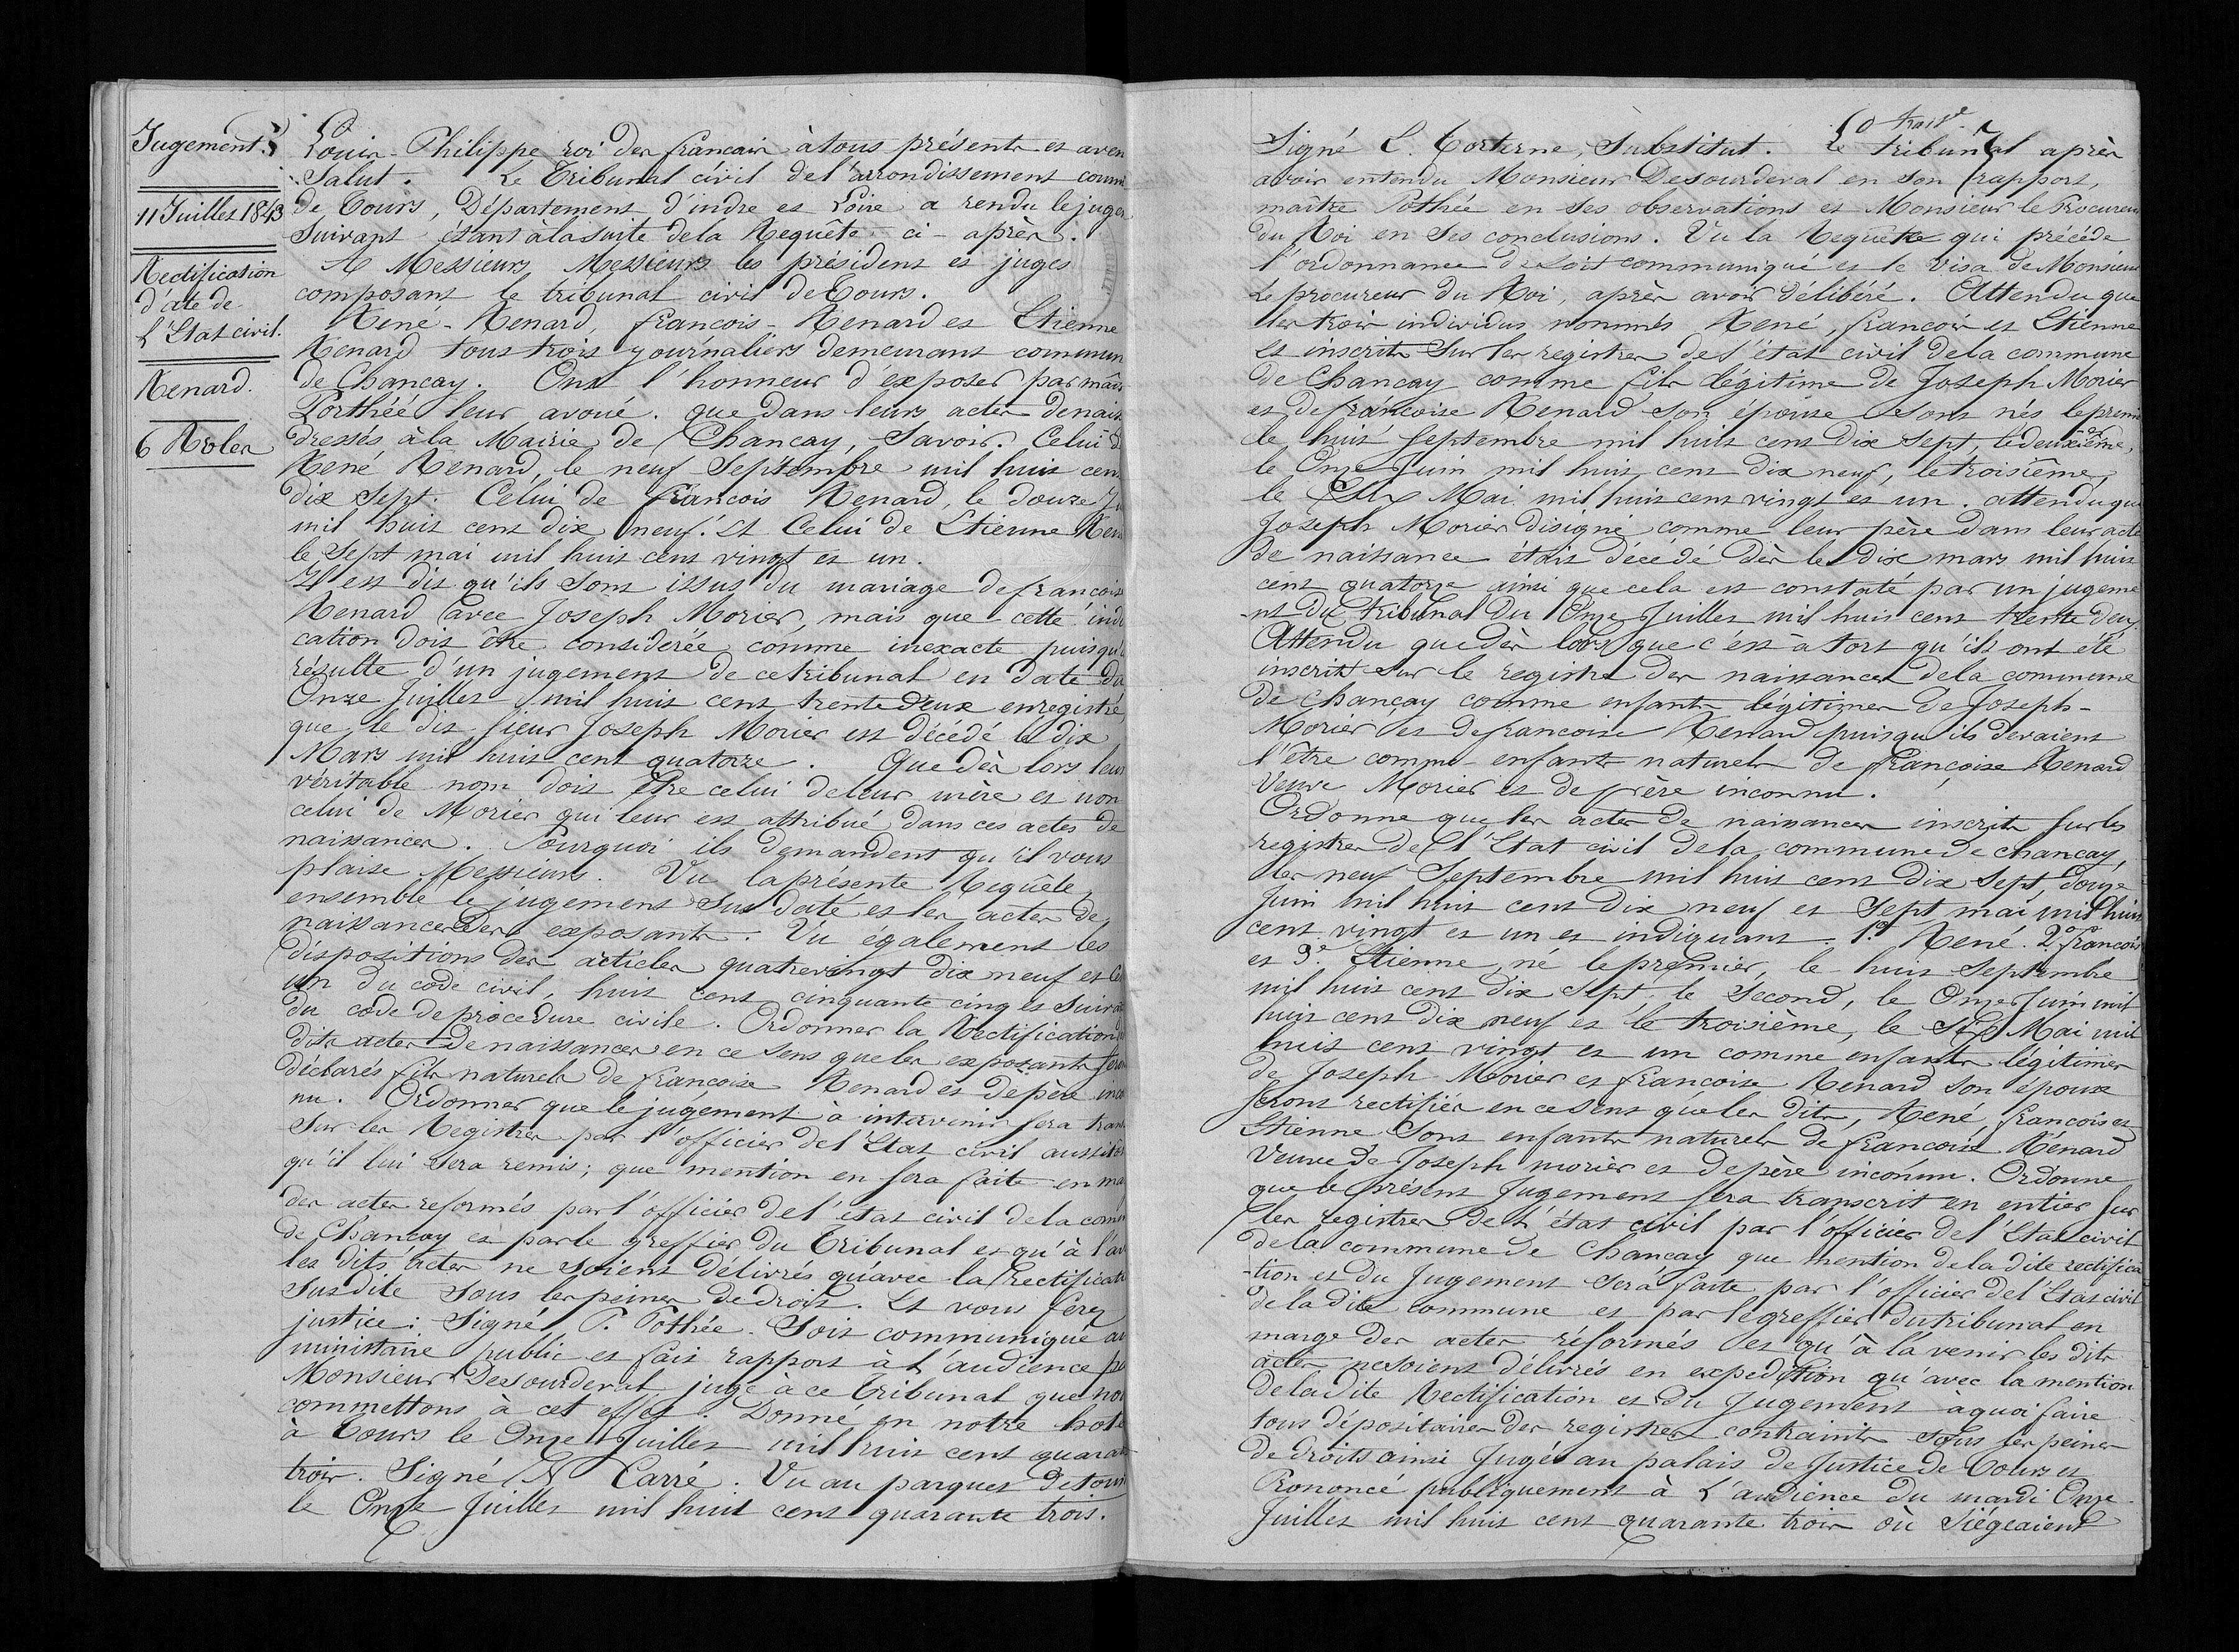 Jugement.
11 Juillet 1843
Rectification
d'ate de
L'Etat civil.
Renard.
6 Roles
Louis-Philippe roi des francais à tous présents et aven
Salut. Le Tribunal civil de l'arrondissement comm
de Tours, Département d'indre et Loire a rendu le juge
Suivant étant à la suite de la Requête ci-après.
A Messieurs Messieurs les président et juges
composant le tribunal civil de Tours.
René-Renard, francois-Renard et Etienne
Renard tous trois journaliers demeurant commun
de Chancay. Ont l'honneur d'exposer par maî
Porthéé leur avoué. que dans leurs actes de nais
dressés à la Mairie de Chancay, Savoir. Celui d
René Renard, le neuf Septembre mil huit cen
dix Sept. Celui de francois Renard, le douze Ju
mil huit cent dix neuf. Et Celui de Etienne Ren
le Sept mai mil huit cent vingt et un.
Il est dit qu'ils sont issus du mariage de francois
Renard avec Joseph Morier, mais que cette indi
cation doit être considérée comme inexacte puisqu'
résulte d'un jugement de ce tribunal en date du
Onze Juillet mil huit cent trente deux enregistré
que le dit sieur Joseph Morier est décédé le dix
Mars mil huit cent quatorze. Que dès lors leur
véritable nom doit être celui de leur mère et non
celui de Morier qui leur est attribué dans ces actes de
naissances. Pourquoi ils demandent qu'il vous
plaise Messieurs. Vu la présente Requête
ensemble le jugement Sus daté et les actes de
naissances des exposants. Vu également les
dispositions des articles quatrevingt dix neuf et Ce
un du code civil, huit cent cinquante cinq et Suiv
du code de procédure civile. Ordonner la Rectification
dits actes de naissances en ce sens que les exposants ser
déclarés fils naturels de francoise Renard et de père inco
nu. Ordonner que le jugement à intervenir sera tran
Sur les Registres par l'officier de l'Etat civil aussitô
qu'il lui sera remis; que mention en sera faite en ma
des actes reformés par l'officier de l'état civil de la com
de Chancay et par le greffier du Tribunal et qu'à l'av
les dits actes ne soient délivrés qu'avec la Rectificati
Susdite sous les peines de droit. Et vous ferez
justice: Signé P. Pothée. Soit communiqué au
ministaire public et fait rapport à l'audience p
Monsieur Desourdeval juge à ce Tribunal que no
commettons à cet effet. Donné en notre hote
à Tours le Onze Juillet mil huit cent quaran
trois. Signé N Carré. Vu au parquet de tour
le Onze Juillet mil huit cent quarante trois.
Signé L. Torterue, Substitut. Le tribunal après
avoir entendu Monsieur Desourdeval en son rapport,
maître Pothée en ses observations et Monsieur le Procureur
du Roi en Ses conclusions. Vu la Requête qui précède
l'ordonnance de soit communiqué et le visa de Monsieur
Le procureur du Roi, après avoir délibéré. Attendu que
les trois individus nommés René, francois et Etienne
et inscrits sur les registres de l'état civil de la commune
de Chancay comme fils légitime de Joseph Morier
et de francoise Renard son épouse sont nés le premi
le huit Septembre mil huit cent dix sept, le deuxième,
le Onze Juin mil huit cent dix neuf, le troisième,
le Mai mil huit cent vingt et un. attendu que
Joseph Morier désigné comme leur père dans leur acte
de naissance était décédé dès le dix mars mil huit
cent quatorze ainsi que cela est constaté par un jugeme
-nt du Tribunal du Onze Juillet mil huit cent trente deux
Attendu que dès lors que c'est à tort qu'ils ont été
inscrits sur le registre des naissances de la commune
de Chançay comme enfants légitimes de Joseph-
Morier et de francoise Renard puisqu'ils devaient
l'être comme enfants naturels de françoise Renard
Veuve Morier et de père inconnu.
Ordonne que les actes de naissances inscrits sur les
registres de l'Etat civil de la commune de chancay,
les neuf Septembre mil huit cent dix sept, douze
Juin mil huit cent dix neuf et Sept mai mil huit
cent vingt et un et indiquant 1º René. 2º francois
et 3º Etienne, né le premier, le huit Septembre
mil huit cent dix Sept, le Second, le Onze Juin mil
huit cent dix neuf et le troisième, le Mai mil
huit cent vingt et un comme enfants légitimes
de Joseph Morier et francoise Renard son épouse
seront rectifiés en ce sens que les dits, René, francois et
Etienne sont enfants naturels de francoise Renard
Veuve de Joseph morier et de père inconnu. Ordonne
que le présent Jugement sera transcrit en entier sur
les registres de l'état civil par l'officier de l'Etat civil
de la commune de Chancay que mention de la dite rectifica
-tion et du Jugement sera faite par l'officier de l'Etat civil
de la dite commune et par le greffier du tribunal en
marge des actes réformés et qu'à l'avenir les dits
actes ne soient délivrés en expedition qu'avec la mention
de la dite Rectification et du Jugement à quoi faire
tous dépositaires des registres contraints sous les peines
de droits ainsi Jugé au palais de Justice de Tours et
Prononcé publiquement à l'audience du mardi Onze
Juillet mil huit cent quarante trois où Siégeaient